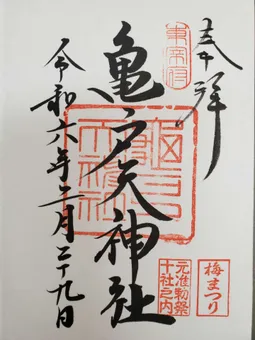 奉拝
東宰府
亀戸天神社
元准勅祭
十社之内
梅まつり
令和六年二月二十九日